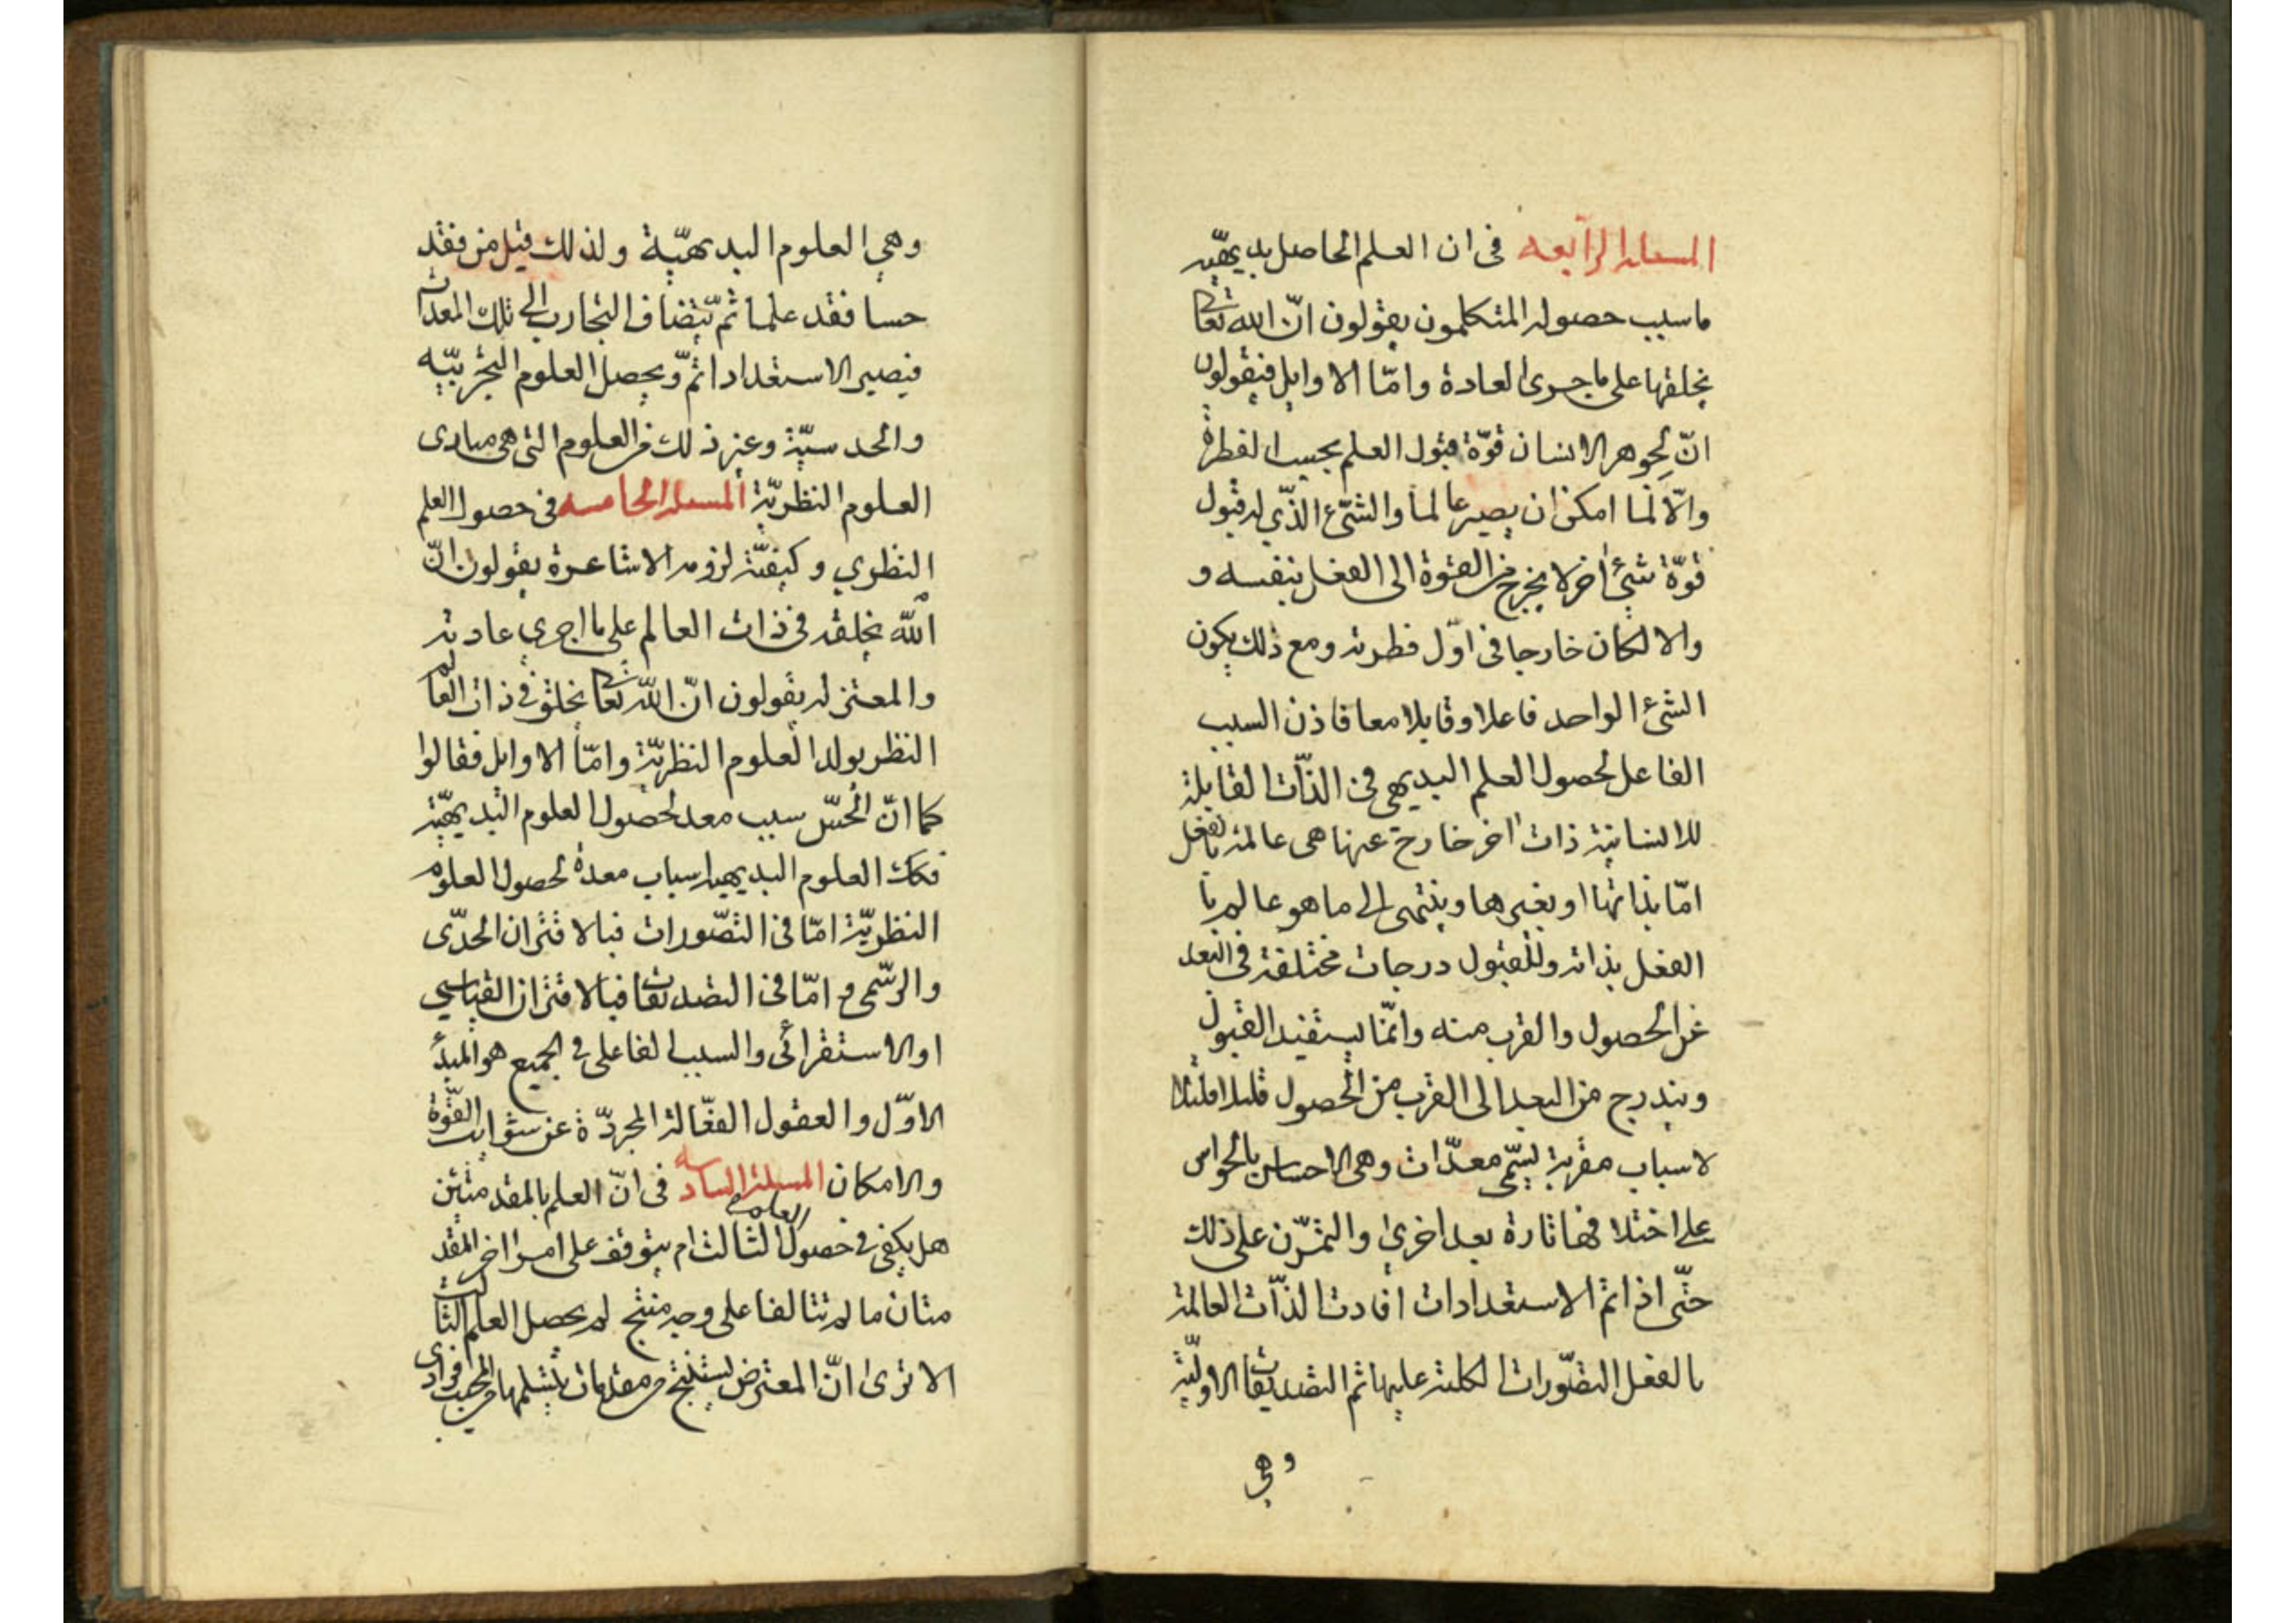 المسئلة الرابعة في ان العلم الحاصل بديهيه
ما سبب حصوله المتكلمون يقولون انّ الله تعا
يخلقها على ما جرى العادة وامّا الاوايل فيقولون
انّ لجوهر الانسان قوّة قبول العلم بحسب الفطرة
والّا لما امكن ان يصير عالما والشئ الذّي له قبول
قوّة شئ أخر لا يخرج من القوة الى الفعل بنفسه و
والا لكان خارجا في اوّل فطرته ومع ذلك يكون
الشئ الواحد فاعلا وقابلا معا فاذن السبب
الفاعل لحصول العلم البديهي في الذّات القابلة
للانسانية ذات اخر خارج عنها هى عالمة بالفعل
امّا بذاتها او بغيرها وينتهى الى ما هو عالم با
الفعل بذاته وللقبول درجات مختلفة في البعد
عن الحصول والقرب منه وانّما يستفيد القبول
ويتدرج من البعد الى القرب من الحصول قليلا قليلا
لاسباب مقربة يسمّى معدّات وهى الاحساس بالحواس
على اختلافها تارة بعد اخرى والتمرّن على ذلك
حتّى اذا تم الاستعدادات افادت الذّات العالمة
بالفعل التصّورات الكلية عليها ثم التصديقات الاولّية
وهي
وهي العلوم البديهيّة ولذلك قيل من فقد
حسا فقد علما ثم يتضاف التجارب الى تلك المعدات
فيصير الاستعداد اتمّ ويحصل العلوم التجربيّه
والحدسيّة وغير ذلك من العلوم التى هى مبادى
العلوم النظريّة المسئلة الخامسه في حصول العلم
النظري وكيفيّة لزومه الاشاعرة يقولون انّ
الله يخلقه في ذات العالم على ما اجرى عادته
والمعتزله يقولون انّ الله تعا يخلق في ذات العالم
النظر يولد العلوم النظريّة وامّا الاوايل فقالوا
كما انّ الحسّ سبب معد لحصول العلوم البديهيّة
فكك العلوم البديهية اسباب معدة لحصول العلوم
النظريّة امّا في التصّورات فبالاقتران الحدّى
والرسّمى و امّا في التصديقات فبالاقتران القياسي
او الاستقرائى والسبب الفاعلى في الجميع هو المبدأ
الاوّل والعقول الفعّالة المجرّدة عن شوايب القوّة
والامكان المسئلة السادسه في انّ العلم بالمقدمتين
هل يكفى في حصول العلم الثالث ام يتوقف على امر اخر المقد
متان ما لم تتالفا على وجه منتج لم يحصل العلم الثالث
الا ترى انّ المعترض يستنتج من مقدمات يتسلمها من المجيب فرادى